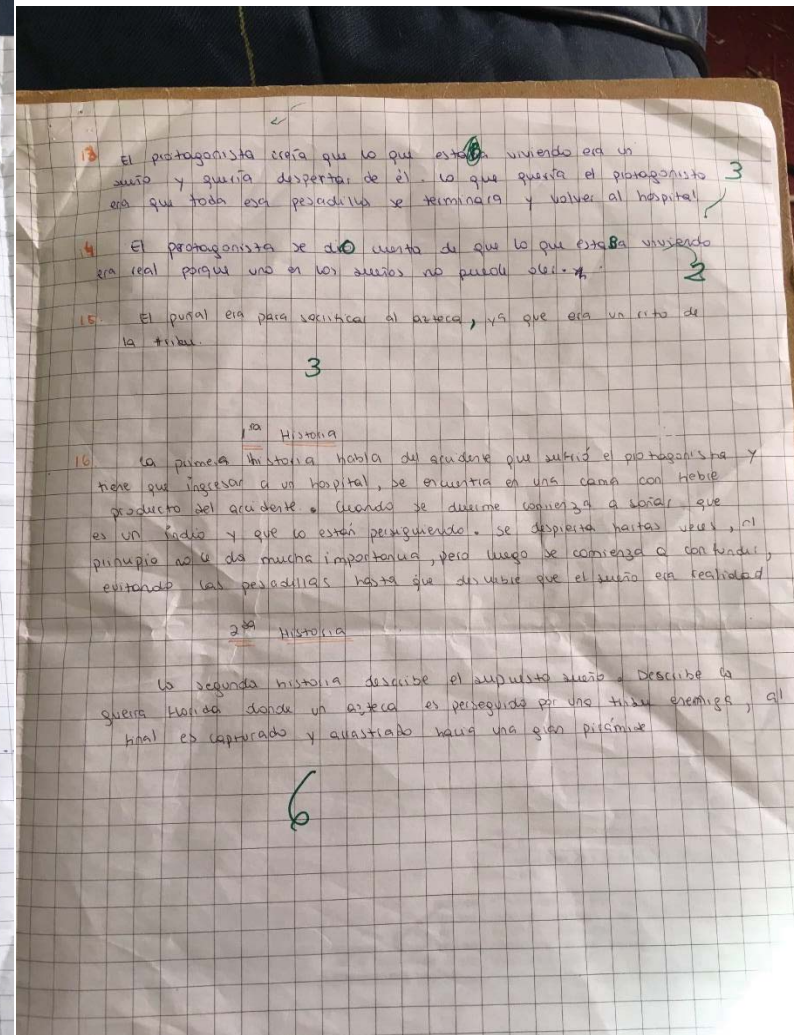 13 El protagonista creía que lo que estaBa viviendo era un
sueño y quería despertar de él. Lo que quería el protagonista 3
era que toda esa pesadilla se terminara y volver al hospital
4 El protagonista se diO cuenta de que lo que estaBa viviendo
era real porque uno en los sueños no puede oler.
2
15. El puñal era para sacrificar al azteca, ya que era un rito de
la tribu.
3
1ra Historia
16 La primera historia habla del accidente que sufrió el protagonista y
tiene que ingresar a un hospital, se encuentra en una cama con fiebre
producto del accidente. Cuando se duerme comienza a soñar que
es un indio y que lo están persiguiendo. Se despierta hartas veces, al
principio no le da mucha importancia, pero luego se comienza a confundir,
evitando las pesadillas hasta que descubre que el sueño era realidad
2da Historia
La segunda historia describe el supuesto sueño. Describe la
guerra Florida donde un azteca es perseguido por una tribu enemiga, al
final es capturado y arrastrado hacia una gran pirámide
6